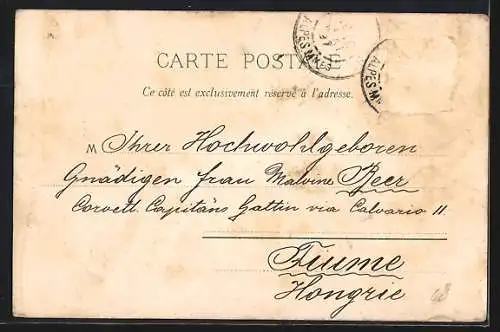 CARTE POSTALE
ALPES Mmes
ALPES M
Ce côté est exclusivement réservé à l'adresse.
M Ihrer Hochwohlgeboren
Gnädigen frau Malvine Beer
Corvett. Capitäns Gattin via Calvario 11.
Fiume
Hongrie